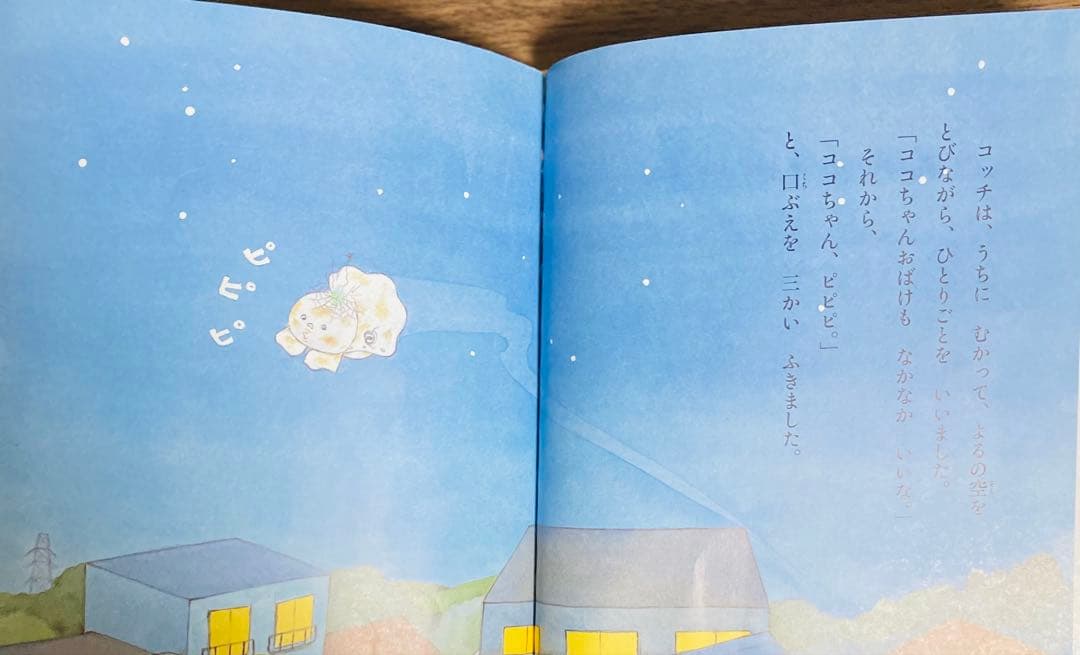 コッチは、うちに　むかって、よるの空を
とびながら、ひとりごとを　いいました。
「ココちゃんおばけも　なかなか　いいな。」
それから、
「ココちゃん、ピピピ。」
と、口ぶえを　三かい　ふきました。
くち
ピ
ピ
ピ